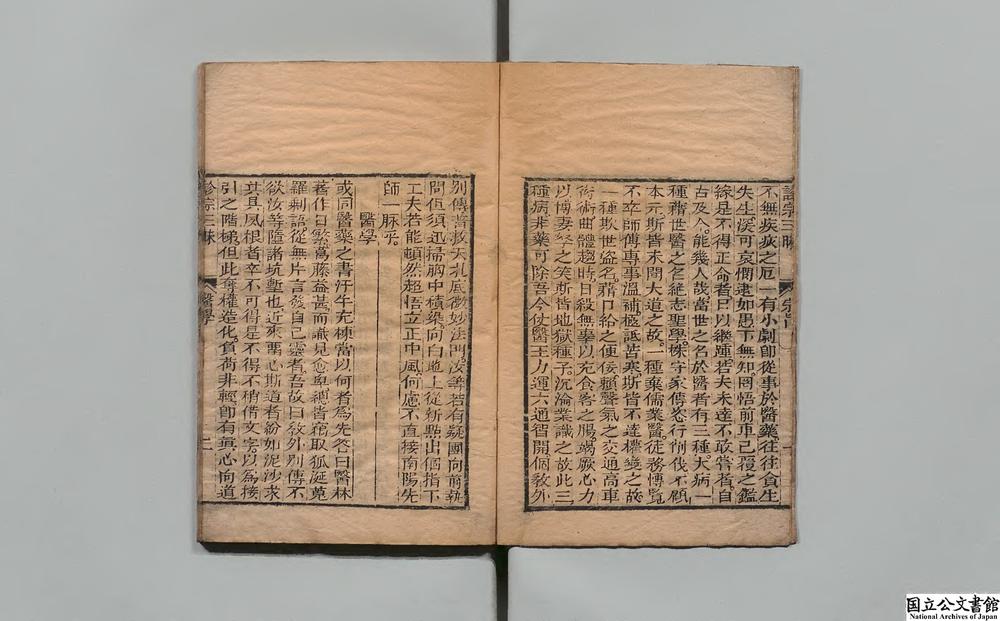 診宗三昧 宗旨 一
不無疾疢之厄一有小劇卽從事於醫藥往往貪生
失生深可哀憫逮如愚下無知罔悟前車已覆之鑑
緣是不得正命者日以繼踵若夫未達不敢嘗者自
古及人能幾人哉當世之名於醫者有三種大病一
種藉世醫之名絕志聖學株守家傳恣行削伐不顧
本元斯皆未聞大道之故一種棄儒業醫徒務博覽
不卒師傳專事溫補極詆苦寒斯皆不達權變之故
一種欺世盜名藉口給之便佞賴聲氣之交通高車
衒術曲體趨時日殺無辜以充食客之腸竭厥心力
以博妻孥之笑斯皆地獄種子沉淪業識之故此三
種病非藥可除吾今仗醫王力運六通智開個敎外
別傳普救夭札底微妙法門汝等若有疑團向前執
問但須迅掃胸中積染向白地上從新點出個指下
工夫若能頓然超悟立正中風何慮不直接南陽先
師一脉乎
醫學
或問醫藥之書汗牛充棟當以何者為先答曰醫林
著作日繁葛藤益甚而識見愈卑總皆窃取狐涎蒐
羅剩語從無片言發自己靈者吾故曰敎外別傳不
欲汝等墮諸坑塹也近來留心斯道者紛如泥沙求
其具夙根者卒不可得是不得不稍借文字以為接
引之階梯但此奪權造化負荷非輕卽有眞心向道
診宗三昧 醫學 二
国立公文書館
National Archives of Japan